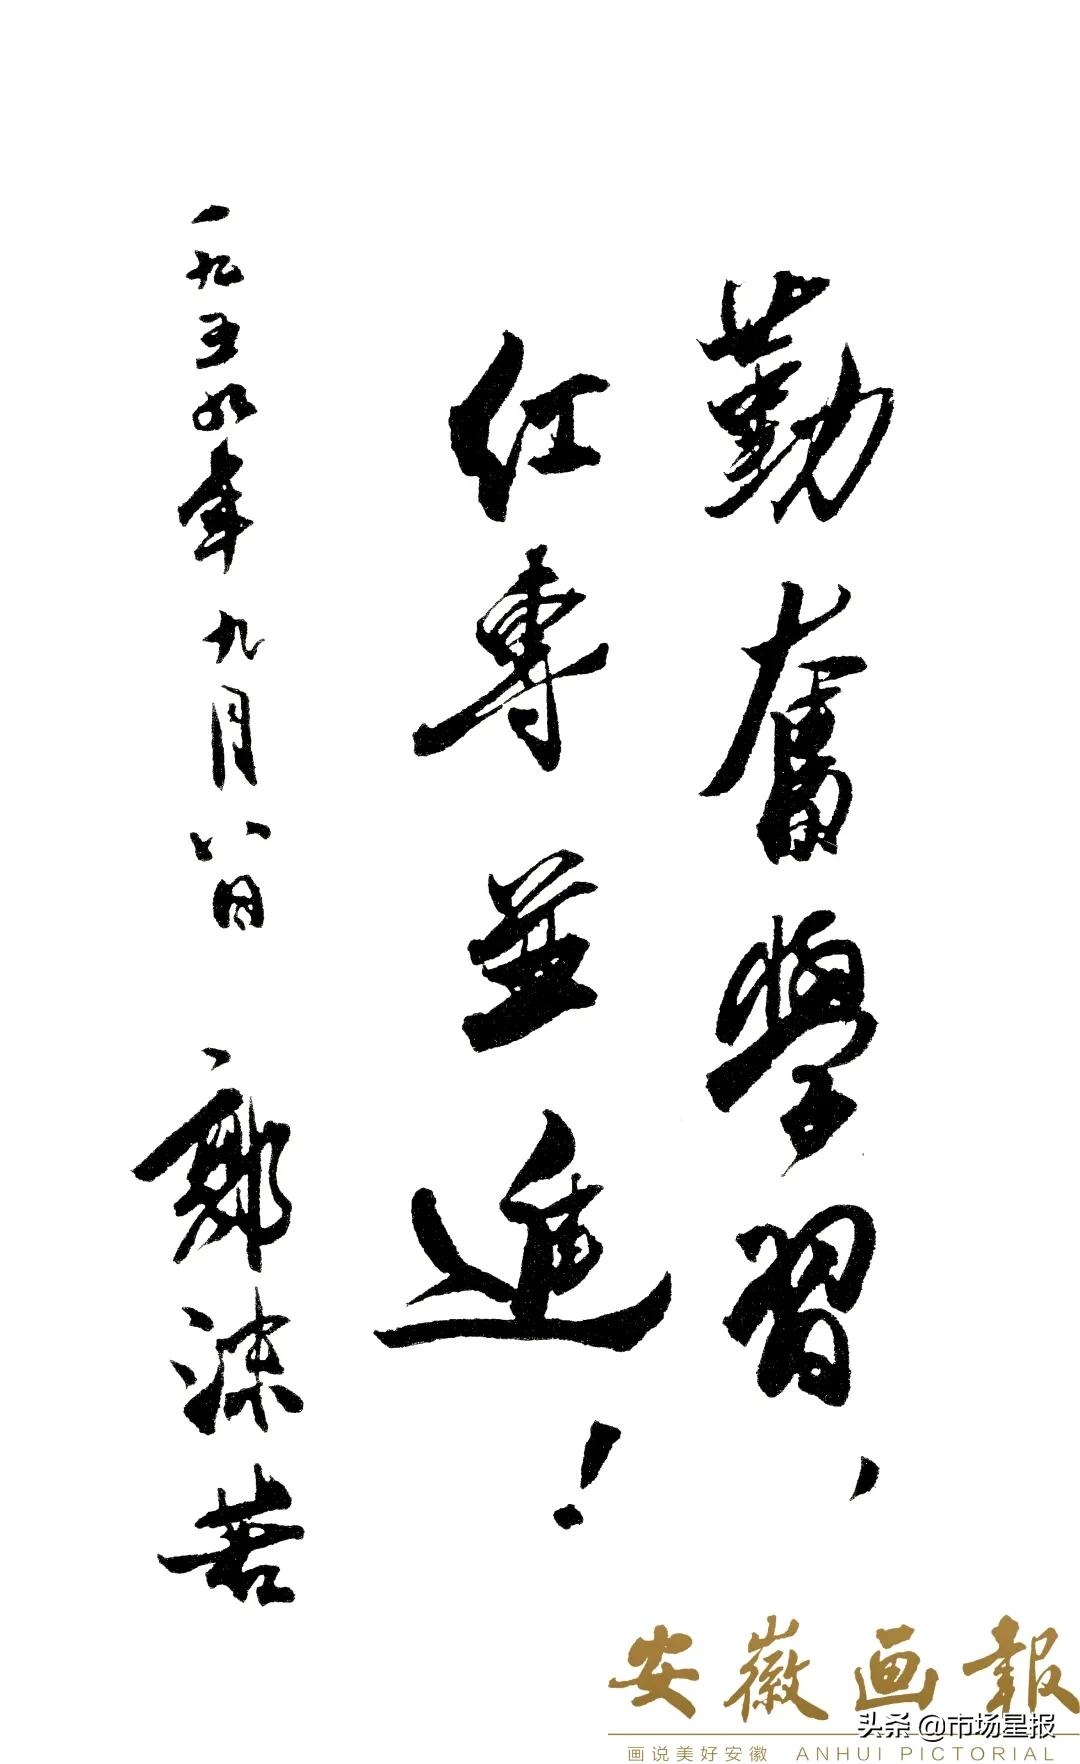 勤奮學習、
紅專並進！
一九五九年九月八日 郭沫若
安徽画報
头条 @市场星报
画说美好安徽 ANHUI PICTORIAL